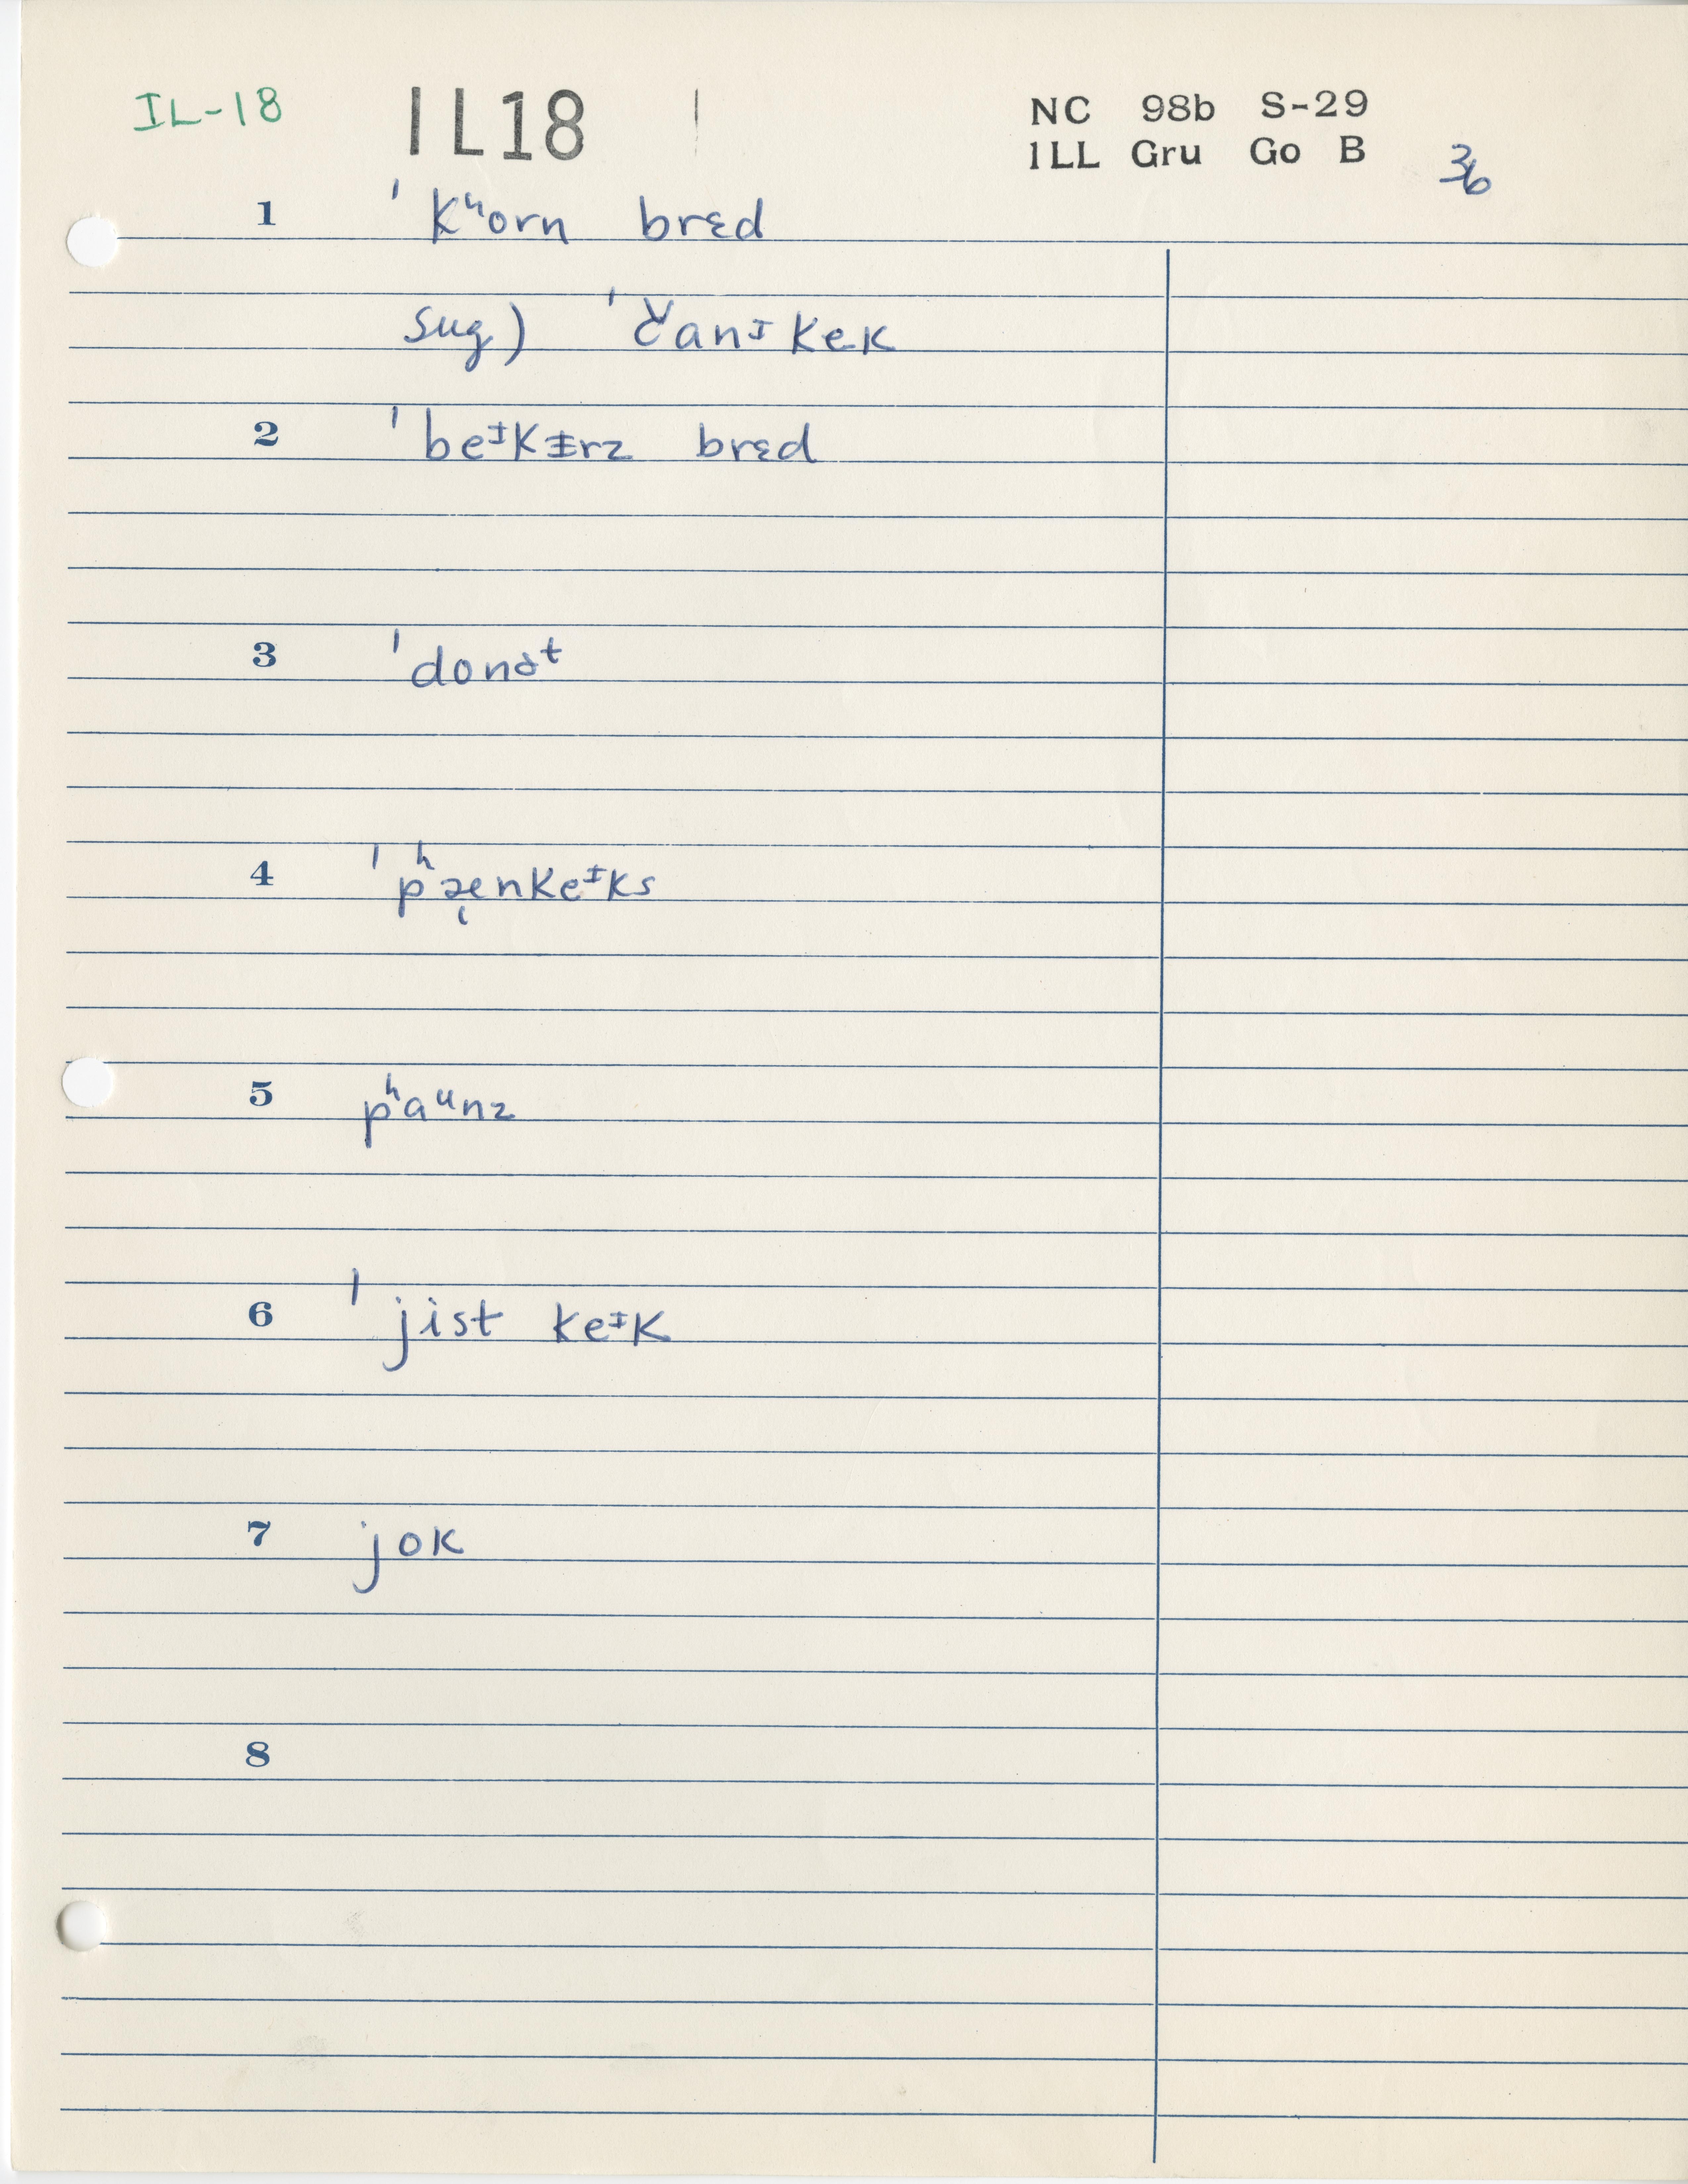 IL-18 IL18 NC 98b S-29
1LL Gru Go B 36
1 ˈkʰorn brɛd
sug) ˈčanᵻkek
2 ˈbeᵻkᵻrz brɛd
3 ˈdonəᵗ
4 ˈpʰæ̨nkeᵻks
5 pʰaᵘnz
6 ˈjist keᵻk
7 jok
8